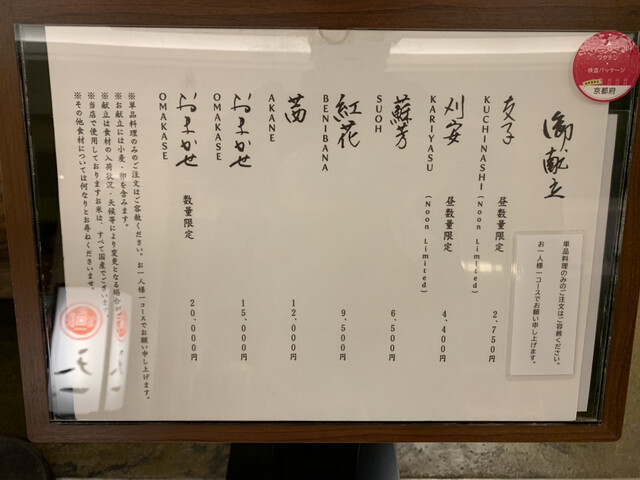 ワクチン
検査パッケージ
京都府
御献立
単品料理のみのご注文はご容赦ください。
お一人様一コースでお願い申し上げます。
KUCHINASHI (Noon Limited)
昼数量限定
2,750円
刈安
KARIYASU (Noon Limited)
昼数量限定
4,400円
蘇芳
SUOH
6,500円
紅花
BENIBANA
9,500円
茜
AKANE
12,000円
おまかせ
OMAKASE
15,000円
おまかせ
OMAKASE
数量限定
20,000円
※単品料理のみのご注文はご容赦ください。お一人様一コースでお願い申し上げます。
※お献立には小麦・卵を含みます。
※献立は食材の入荷状況・天候等により変更となる場合が
※当店で使用しておりますお米は、すべて国産でございます。
※その他食材については何なりとお尋ねくださいませ。